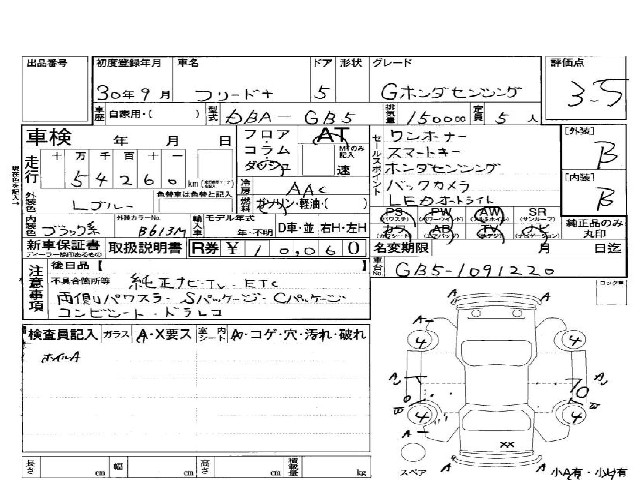 出品番号 初度登録年月 車名 ドア 形状 グレード 評価点
30年9月 フリード+ 5 Gホンダセンシング 3.5
車歴 自家用・( ) 型式 DBA-GB5 排気量 1500cc 定員 5 人
車検 年 月 日 フロア・コラム・ダッシュ AT MTのみ記入 速
走行 十 万 千 百 十 一
54260 km
冷房 AAC
外装色 Lブルー 色替車は色替と記入 燃料 ガソリン・軽油・( )
内装色 ブラック系 外装カラーNo. B613M 輸入車 モデル年式 年・不明 D車・並 右H・左H
新車保証書 取扱説明書 R券 ¥10,060
ディーラー捺印のあるもの
セールスポイント
ワンオーナー
スマートキー
ホンダセンシング
バックカメラ
LEDオートライト
PS PW AW SR
(サンルーフ)
カワ AB TV ナビ
[外装] B
[内装] B
純正品のみ丸印
名変期限 月 日迄
車台No. GB5-1091220
注意事項 後日品【 】
不具合箇所等 純正ナビ・TV・ETC
両側パワスラ・Sパッケージ・Cパッケージ
コンビシート・ドラレコ
検査員記入 ガラス A・X要ス 室内シート A・コゲ・穴・汚れ・破れ
ホイルA
A A
4 4
A A
10
4 4
A A
XX
スペア
小A有・小U有
長さ cm 幅 cm 高さ cm 積載量 kg